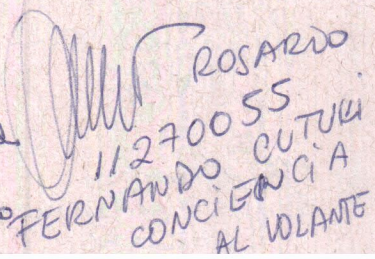 ROSARIO
11270055
FERNANDO CUTULI
CONCIENCIA
AL VOLANTE